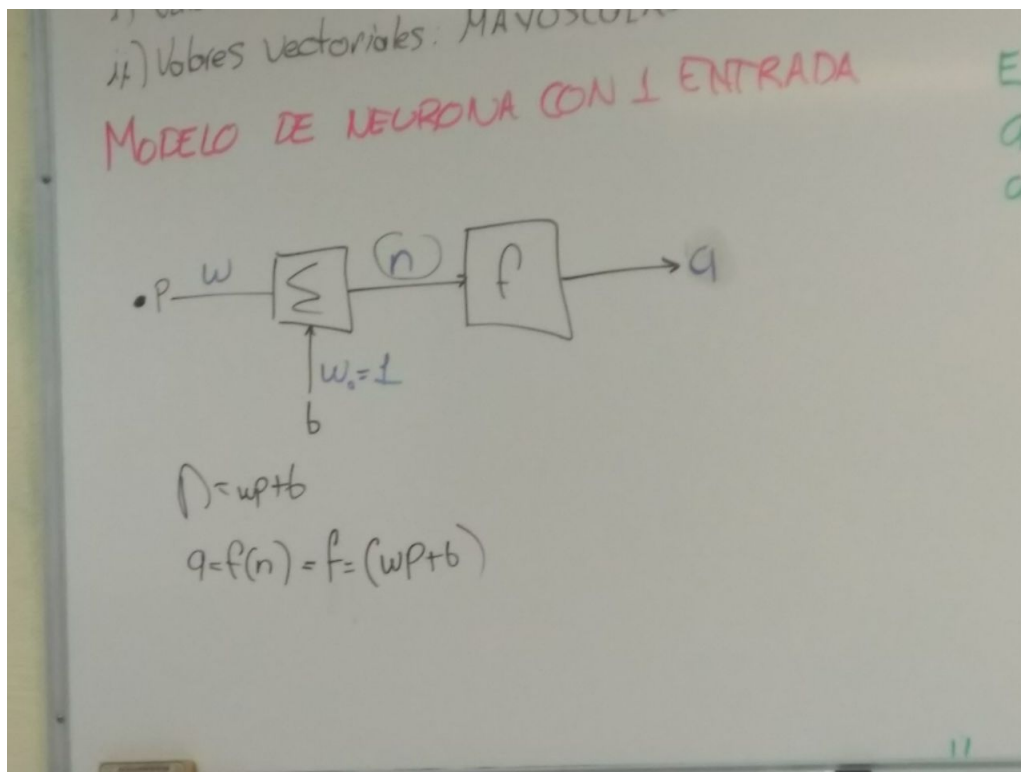 ii) Valores vectoriales: MAYÚSCULAS
MODELO DE NEURONA CON 1 ENTRADA
p w Σ n f a
w₀=1
b
n=wp+b
a=f(n)=f=(wp+b)